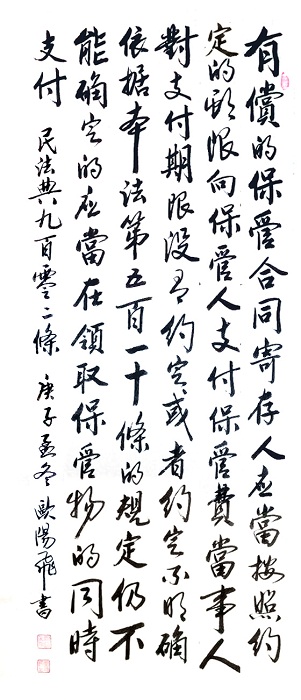 有償的保管合同寄存人应當按照约
定的期限向保管人支付保管費當事人
對支付期限没有约定或者约定不明确
依据本法第五百一十條的規定仍不
能确定的应當在領取保管物的同時
支付 民法典九百零二條 庚子孟冬 歐陽飛書